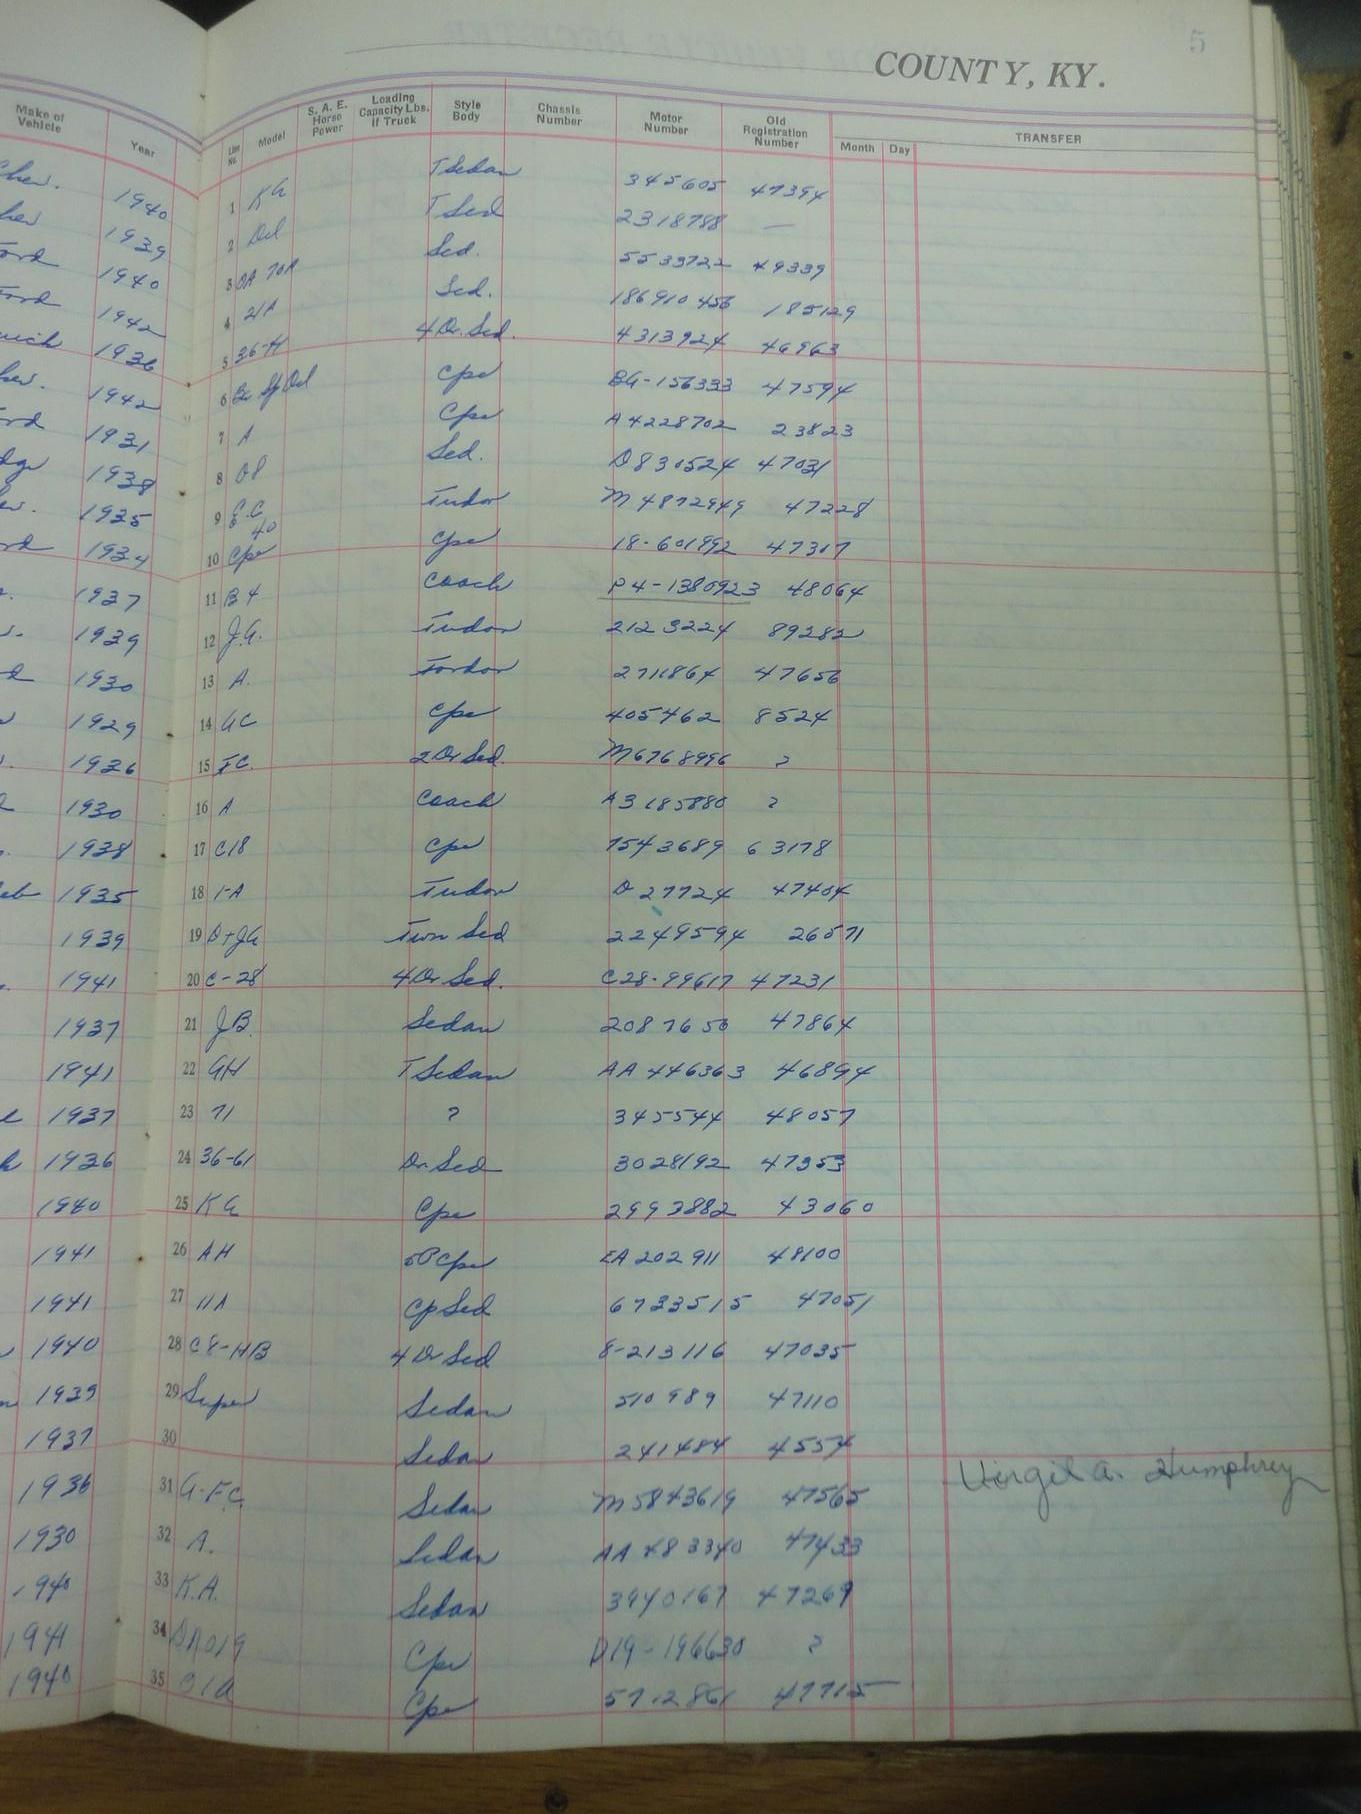 5
COUNTY, KY.
Make of Vehicle Year Line No. Model S. A. E. Horse Power Loading Capacity Lbs. If Truck Style Body Chassis Number Motor Number Old Registration Number Month Day TRANSFER
1940 1 KA T Sedan 345605 47394
1939 2 Del T Sed 2318788 —
1940 3 OA 70A Sed. 5533722 49339
1942 4 21A Sed. 186910456 185129
1936 5 36-H 4 Dr. Sed. 4313924 46963
1942 6 Sp Del Cpe BG-156333 47594
1931 7 A Cpe A4228702 23823
1938 8 D8 Sed. D830524 47031
1935 9 E.C. Tudor M 4872949 47228
1934 10 40 Cpe Cpe 18-601992 47317
1937 11 B4 Coach P4-1380923 48064
1939 12 J.A. Tudor 2123224 89282
1930 13 A. Fordor 2711864 47656
1929 14 AC Cpe 405462 8524
1936 15 FC. 2 Dr Sed. M6768996 ?
1930 16 A Coach A3185880 ?
1938 17 C18 Cpe 7543689 63178
1935 18 1-A Tudor D 27724 47404
1939 19 D+JA Twn Sed 2249594 26571
1941 20 C-28 4 Dr Sed. C28-99617 47231
1937 21 J.B. Sedan 2087650 47864
1941 22 AH T Sedan AA 446363 46894
1937 23 71 ? 345544 48057
1936 24 36-61 Dr. Sed 3028192 47353
1940 25 KA Cpe 2993882 43060
1941 26 AH 5P Cpe EA 202911 48100
1941 27 11A Cp Sed 6733515 47051
1940 28 C8-HB 4 Dr Sed 8-213116 47035
1939 29 Super Sedan 510989 47110
1937 30 Sedan 241484 4554
1936 31 G-F.C. Sedan M5843619 47565 Virgil A. Humphrey
1930 32 A. Sedan AA 483340 47433
1940 33 K.A. Sedan 3940167 47269
1941 34 Cpe D19-196630 ?
1940 35 01A Cpe 5712861 47715